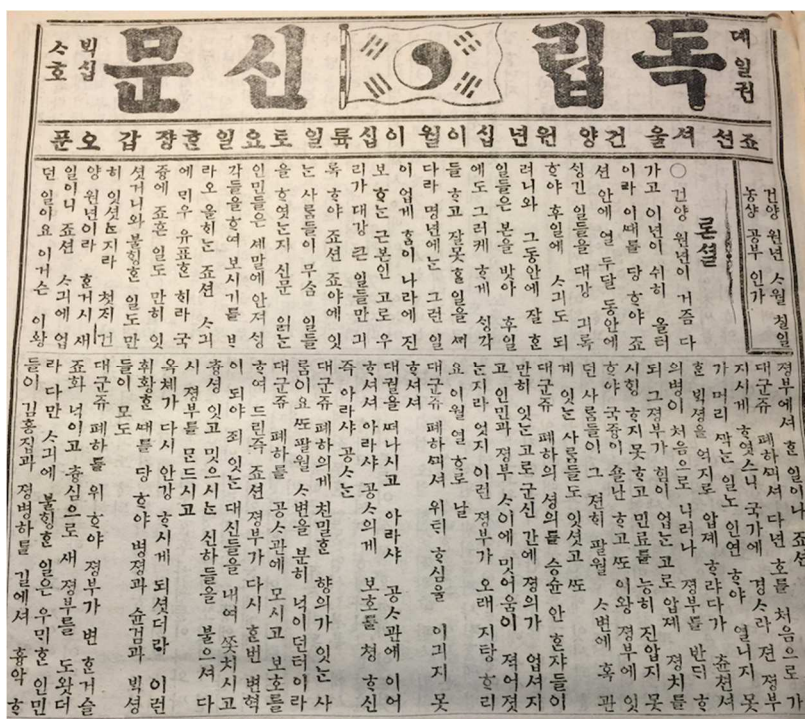 뎨일권
독립신문
ᄇᆡᆨ십
ᄉᆞ호
죠션 셔울 건양 원년 십이월 이십륙일 토요일 ᄒᆞᆫ쟝 갑 오푼
건양 원년 ᄉᆞ월 칠일
농샹 공부 인가
론셜
○ 건양 원년이 거즘 다
가고 이년이 쉬히 올터
이라 이ᄯᅢ를 당 ᄒᆞ야 죠
션 안에 열 두달 동안에
ᄉᆡᆼ긴 일들을 대강 긔록
ᄒᆞ야 후일에 ᄉᆞ긔도 되
려니와 그동안에 잘 ᄒᆞᆫ
일들은 본을 밧아 후일
에도 그러케 ᄒᆞ게 ᄉᆡᆼ각
들 ᄒᆞ고 잘못 ᄒᆞᆯ일을 ᄭᆡ
다라 명년에는 그런 일
이 업게 홈이 나라에 진
보 ᄒᆞ는 근본인 고로 우
리가 대강 큰 일들만 긔
록 ᄒᆞ야 죠션 죠야에 잇
ᄂᆞᆫ 사ᄅᆞᆷ들이 무ᄉᆞᆷ 일들
을 ᄒᆞ엿ᄂᆞᆫ지 신문 읽는
인민들은 셰말에 안져 ᄉᆡᆼ
각들을 ᄒᆞ여 보시기를 ᄇᆞ
라오 올ᄒᆡᄂᆞᆫ 죠션 ᄉᆞ긔
에 ᄆᆡ우 유표ᄒᆞᆫ ᄒᆡ라 국
즁에 죠흔 일도 만히 잇
셧거니와 불ᄒᆡᆼᄒᆞᆫ 일도 만
히 잇셧ᄂᆞᆫ지라 첫ᄌᆡ 건
양 원년이라 ᄒᆞᆫ거시 새
일이니 죠션 ᄉᆞ긔에 업
던 일이요 이거슨 이왕
졍부에셔 ᄒᆞᆫ 일이나 죠션
대군쥬 폐하ᄭᅴ셔 다년 호를 처음으로 가
지시게 ᄒᆞ엿스니 국가에 경ᄉᆞ라 젼 졍부
가 머리 ᄭᅡᆨ는 일노 인연 ᄒᆞ야 열니지 못
ᄒᆞᆫ ᄇᆡᆨ셩을 억지로 압졔 ᄒᆞ랴다가 츈쳔셔
의병이 처음으로 니러나 졍부를 반ᄃᆡ ᄒᆞ
되 그졍부가 힘이 업ᄂᆞᆫ고로 압졔 졍치를
시ᄒᆡᆼ ᄒᆞ지 못ᄒᆞ고 민료를 능히 진압지 못
ᄒᆞ야 국즁이 쇼난 ᄒᆞ고 ᄯᅩ 이왕 졍부에 잇
던 사ᄅᆞᆷ들이 그 젼히 팔월 ᄉᆞ변에 혹 관
계 잇는 사ᄅᆞᆷ들도 잇셧고 ᄯᅩ
대군쥬 폐하의 셩의를 승슌 안 ᄒᆞᆫ쟈들이
만히 잇는고로 군신 간에 졍의가 업셔지
고 인민과 졍부 ᄉᆞ이에 밋어움이 젹어졋
ᄂᆞᆫ지라 엇지 이런 졍부가 오래 지탕 ᄒᆞ리
요 이월 열ᄒᆞ로 날
대군쥬 폐하ᄭᅴ셔 위ᄐᆡ ᄒᆞ심을 이긔지 못
ᄒᆞ셔
대궐을 ᄯᅥ나시고 아라샤 공ᄉᆞ관에 이어
ᄒᆞ셔셔 아라샤 공ᄉᆞ의게 보호를 쳥 ᄒᆞ신
즉 아라샤 공ᄉᆞᄂᆞᆫ
대군쥬 폐하의게 친밀ᄒᆞᆫ 향의가 잇ᄂᆞᆫ 사
ᄅᆞᆷ이요 ᄯᅩ 팔월 ᄉᆞ변을 분히 넉이던터이라
대군쥬 폐하를 공ᄉᆞ관에 모시고 보호를
ᄒᆞ여 드린즉 죠션 졍부가 다시 ᄒᆞᆫ번 변혁
이 되야 죄 잇ᄂᆞᆫ 대신들을 내여 ᄶᅩᆺ치시고
츙셩 잇고 밋으시ᄂᆞᆫ 신하들을 불으셔 다
시 졍부를 ᄆᆞᆫ드시고
옥톄가 다시 안강 ᄒᆞ시게 되셧더라 이런
취황ᄒᆞᆫ ᄯᅢ를 당 ᄒᆞ야 병졍과 슌검과 ᄇᆡᆨ셩
들이 모도
대군쥬 폐하를 위 ᄒᆞ야 졍부가 변 ᄒᆞᆫ거슬
죠화 넉이고 츙심으로 새 졍부를 도왓더
라 다만 ᄉᆞ긔에 불ᄒᆡᆼᄒᆞᆫ 일은 우ᄆᆡᄒᆞᆫ 인민
들이 김홍집과 졍병하를 길에셔 흉악 ᄒᆞ